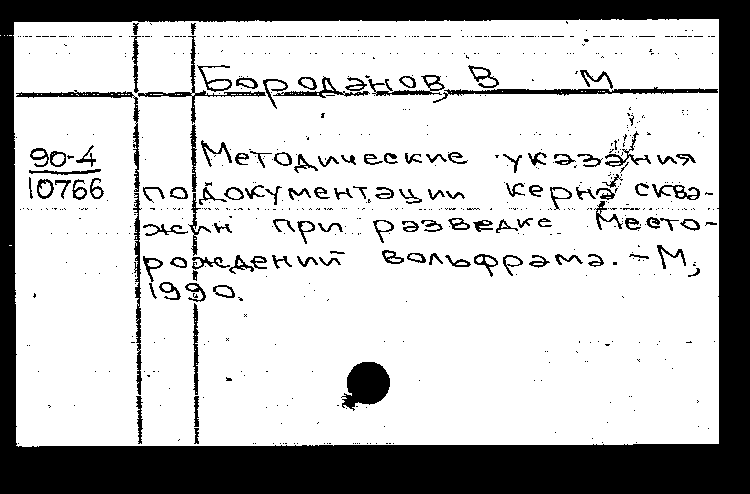 Бороданов, В М
90-4
10766
Методические указания
по документации керна сква-
жин при разведке место-
рождений вольфрама. - М,
1990.